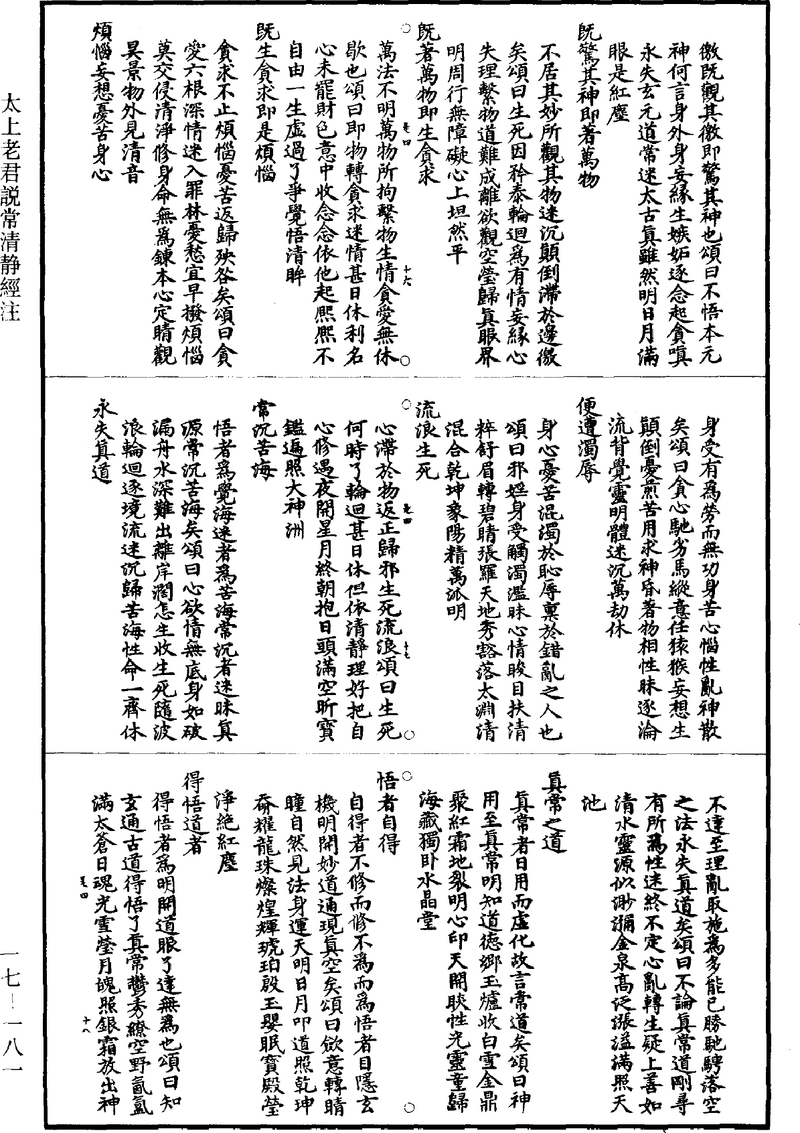 徼既觀其徼即驚其神也頌曰不悟本元
神何言身外身妄緣生嫉妬逐念起貪嗔
永失玄元道常迷太古真雖然明日月滿
眼是紅塵
既驚其神即著萬物
不居其妙所觀其物迷沉顛倒滯於邊徼
矣頌曰生死因矜泰輪迴為有情妄緣心
失理繫物道難成離欲觀空瑩歸真眼界
明周行無障礙心上坦然平
既著萬物即生貪求
萬法不明萬物所拘繫物生情貪愛無休
歇也頌曰即物轉貪求迷情甚日休利名
心未罷財色意中收念念依他起熙熙不
自由一生虛過了爭覺悟清眸
既生貪求即是煩惱
貪求不止煩惱憂苦返歸殃咎矣頌曰貪
愛六根深情迷入罪林憂愁宜早撥煩惱
莫交侵清淨修身命無為鍊本心定睛觀
昊景物外見清音
煩惱妄想憂苦身心
㐧四
十六
身受有為勞而無功身苦心惱性亂神散
矣頌曰貪心馳劣馬縱意任猿猴妄想生
顛倒憂煎苦用求神昏著物相性昧逐淪
流背覺靈明體迷沉萬劫休
便遭濁辱
身心憂苦混濁於恥辱稟於錯亂之人也
頌曰邪婬身受觸濁濫昧心情睃目扶清
粹舒眉轉碧睛張羅天地秀豁落太淵清
混合乾坤象陽精萬派明
流浪生死
心滯於物返正歸邪生死流浪頌曰生死
何時了輪迴甚日休但依清靜理好把自
心修遇夜開星月終朝抱日頭滿空昕寶
鑑遍照大神洲
常沉苦海
悟者為覺海迷者為苦海常沉者迷昧真
源常沉苦海矣頌曰心欲情無底身如破
漏舟水深難出離岸濶怎生收生死隨波
浪輪迴逐境流迷沉歸苦海性命一齊休
永失真道
㐧四
十七
不達至理亂取施為多能已勝馳騁落空
之法永失真道矣頌曰不論真常道剛尋
有所為性迷終不定心亂轉生疑上善如
清水靈源似渺瀰金泉高泛漲溢滿照天
池
真常之道
真常者日用而虛化故言常道矣頌曰神
用至真常明知道德鄉玉爐收白雪金鼎
聚紅霜地裂明心印天開映性光靈童歸
海藏獨卧水晶堂
悟者自得
自得者不修而修不為而為悟者目隱玄
機明開妙道通現真空矣頌曰歛意轉睛
瞳自然見法身運天明日月叩道照乾珅
奔耀龍珠燦煌輝琥珀殷玉嬰眠寶殿瑩
淨絕紅塵
得悟道者
得悟者為明開道眼了達無為也頌曰知
玄通古道得悟了真常鬱秀繚空野氤氳
滿太蒼日魂光雪瑩月魄照銀霜放出神
㐧四
十八
太上老君説常清静經注
一七—一八一